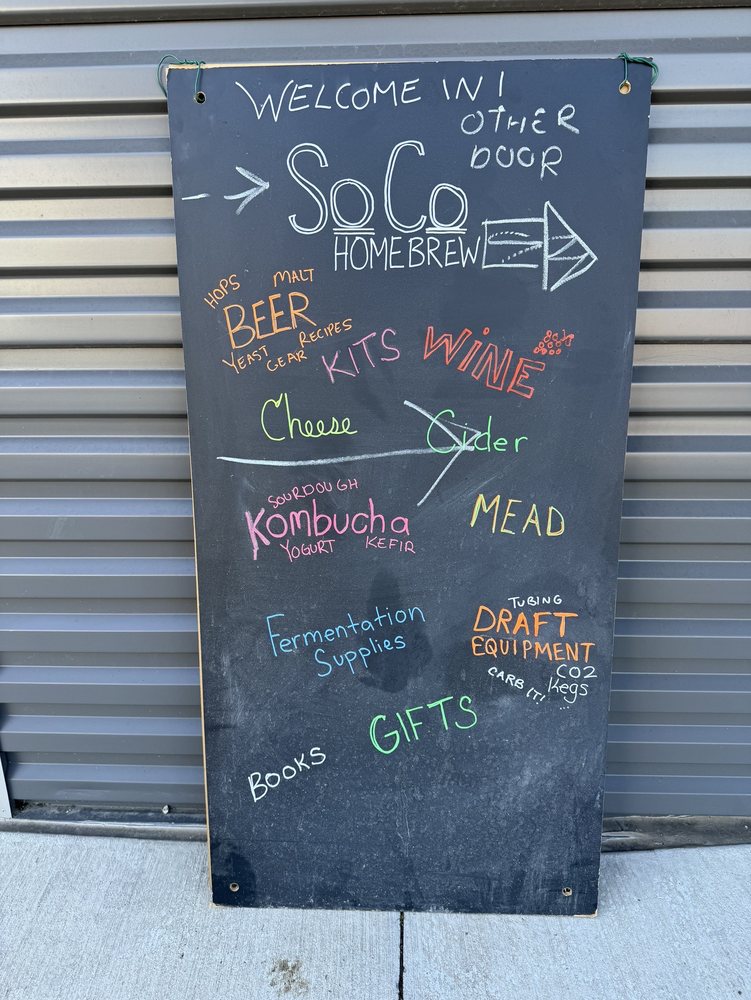 WELCOME IN!
OTHER
DOOR
SoCo
HOMEBREW
HOPS MALT
BEER
YEAST GEAR RECIPES
KITS
WINE
Cheese
Cider
SOURDOUGH
Kombucha
YOGURT KEFIR
MEAD
Fermentation
Supplies
TUBING
DRAFT
EQUIPMENT
CARB IT! CO2
Kegs
...
GIFTS
BOOKS